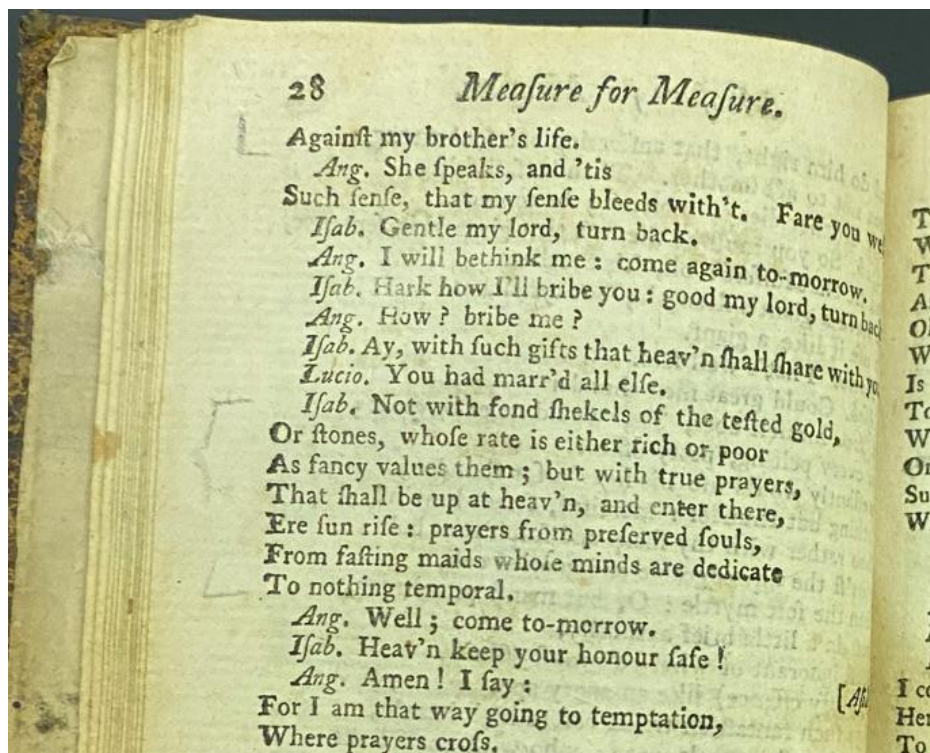 28 Meaſure for Meaſure.
Againſt my brother's life.
Ang. She ſpeaks, and 'tis
Such ſenſe, that my ſenſe bleeds with't. Fare you
Iſab. Gentle my lord, turn back.
Ang. I will bethink me : come again to-morrow.
Iſab. Hark how I'll bribe you : good my lord, turn
Ang. How ? bribe me ?
Iſab. Ay, with ſuch gifts that heav'n ſhall ſhare with
Lucio. You had marr'd all elſe.
Iſab. Not with fond ſhekels of the teſted gold,
Or ſtones, whoſe rate is either rich or poor
As fancy values them ; but with true prayers,
That ſhall be up at heav'n, and enter there,
Ere ſun riſe : prayers from preſerved ſouls,
From faſting maids whoſe minds are dedicate
To nothing temporal.
Ang. Well ; come to-morrow.
Iſab. Heav'n keep your honour ſafe !
Ang. Amen ! I ſay :
For I am that way going to temptation,
Where prayers croſs.
Is
I
To